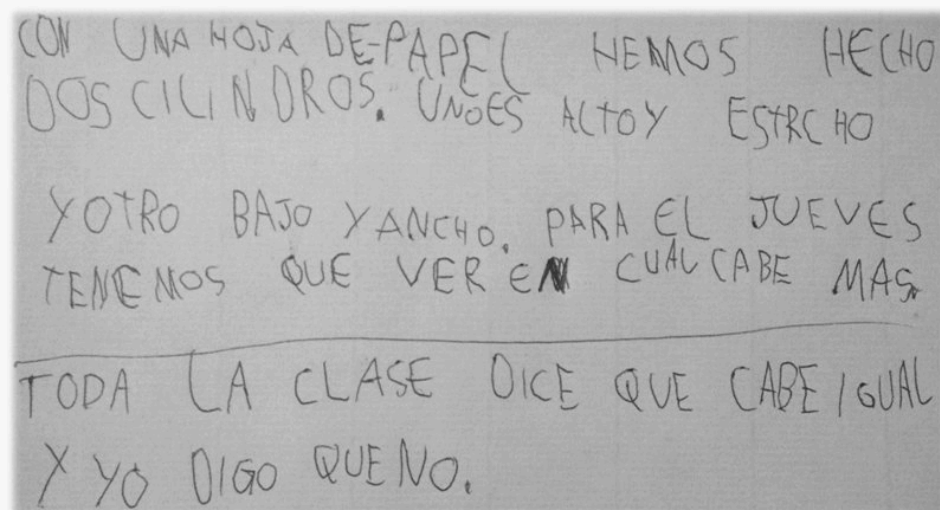 CON UNA HOJA DE PAPEL HEMOS HECHO
DOS CILINDROS. UNO ES ALTO Y ESTRCHO
Y OTRO BAJO Y ANCHO. PARA EL JUEVES
TENEMOS QUE VER EN CUAL CABE MAS.
TODA LA CLASE DICE QUE CABE IGUAL
Y YO DIGO QUE NO.